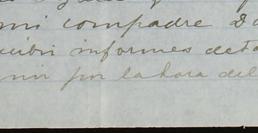 mi compadre D
cibir informes deta
nir por la hora del